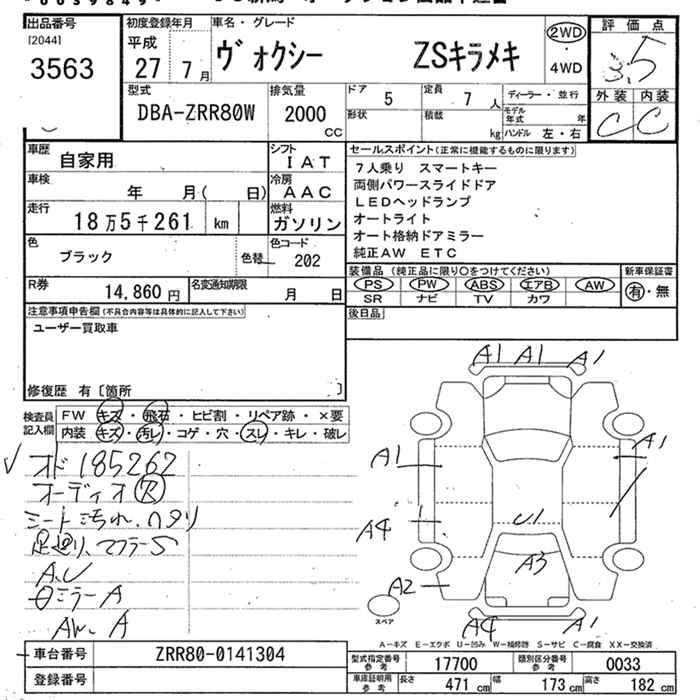 出品番号
[2044]
3563
初度登録年月
平成
27 7 月
車名・グレード
ヴォクシー ZSキラメキ
2WD
・
4WD
評価点
3.5
外装 内装
C C
型式
DBA-ZRR80W
排気量
2000
CC
ドア 5
形状
定員 7 人
積載 kg
ディーラー・並行
モデル年式 年
ハンドル 左・右
車歴 自家用
シフト IAT
車検 年 月( 日)
冷房 AAC
走行 18万5千261 km
燃料 ガソリン
色 ブラック
色替
色コード 202
R券 14,860 円
名変通知期限 月 日
セールスポイント(正常に機能するものに限ります)
7人乗り スマートキー
両側パワースライドドア
LEDヘッドランプ
オートライト
オート格納ドアミラー
純正AW ETC
装備品(純正品に限り○をつけてください)
PS PW ABS エアB AW
SR ナビ TV カワ
新車保証書
有・無
後日品
注意事項申告欄(不具合内容等は具体的に記入して下さい)
ユーザー買取車
修復歴 有〔箇所 〕
検査員記入欄
FW キズ・飛石・ヒビ割・リペア跡・×要
内装 キズ・汚レ・コゲ・穴・スレ・キレ・破レ
オド185262
オーディオ
シート汚れ、ヘタリ
足廻り、マフラーS
A.U
ミラーA
AW、A
A1 A1 A1
A1
A1
A4
U1
A2
A3
A4
A1
スペア
A-キズ E-エクボ U-凹み W-補修跡 S-サビ C-腐食 XX-交換済
車台番号 ZRR80-0141304
登録番号
型式指定番号参考 17700
類別区分番号参考 0033
車庫証明用参考 長さ 471 cm 幅 173 cm 高さ 182 cm